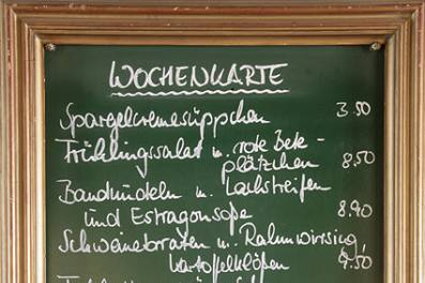 WOCHENKARTE
Spargelcremesüppchen 3.50
Frühlingssalat u. rote Bete-
plätzchen 8.50
Bandnudeln u. Lachsstreifen
und Estragonsoße 8.90
Schweinebraten u. Rahmwirsing,
Kartoffelklößen 9.50